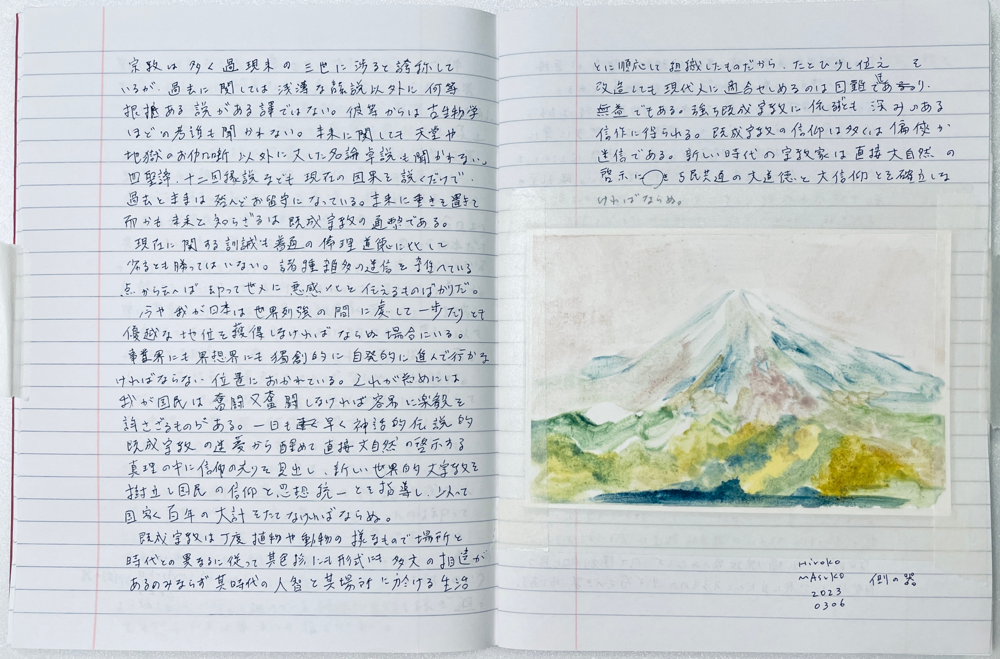 宗教は多く過現未の三世に渉ると誇称して
いるが、過去に関しては浅薄な談説以外に何等
根拠ある説がある譯ではない。彼等からは古生物学
ほどの考説も聞かれない。未来に関しても天堂や
地獄のお伽噺以外に大した名論卓説も聞かれない。
四聖諦、十二因縁説なども現在の因果を説くだけで、
過去と未来は殆んどお留守になっている。未来に重きを置きて
而かも未来を知らざるは既成宗教の通弊である。
現在に関する訓誡も普通の倫理道徳に比して
劣るとも勝ってはいない。諸種雑多の迷信を
点から云へば却って世人に悪感化を伝えるものばかりだ。
今や我が日本は世界列強の間に処して一歩たりとも
優越な地位を獲得しなければならぬ場合にいる。
事業界にも思想界にも獨創的に自発的に進んで行かな
ければならない位置におかれている。これが為めには
我が国民は奮闘又奮闘しなければ容易に楽観を
許さざるものがある。一日も早く神話的伝説的
既成宗教の迷夢から醒めて直接大自然の啓示する
真理の中に信仰の光りを見出し、新しい世界的大宗教を
樹立し国民の信仰と思想統一とを指導し、以って
国家百年の大計をたてなければならぬ。
既成宗教は丁度植物や動物の様なもので場所と
時代との異なるに従って其色彩にも形式にも多大の相違が
あるのみならず其時代の人智と其場所に於ける生活
とに順応して組織したものだから、たとひ少し位え を
改造しても現代人に適合せしめるのは困難であり、
無益でもある。強ち既成宗教に依らずとも深みのある
信仰は得られる。既成宗教の信仰は多くは偏侠か
迷信である。新しい時代の宗教家は直接大自然の
啓示に 民共通の大道徳と大信仰とを確立しな
ければならぬ。
Hiroko
mAsuko
2023
0306
側の器